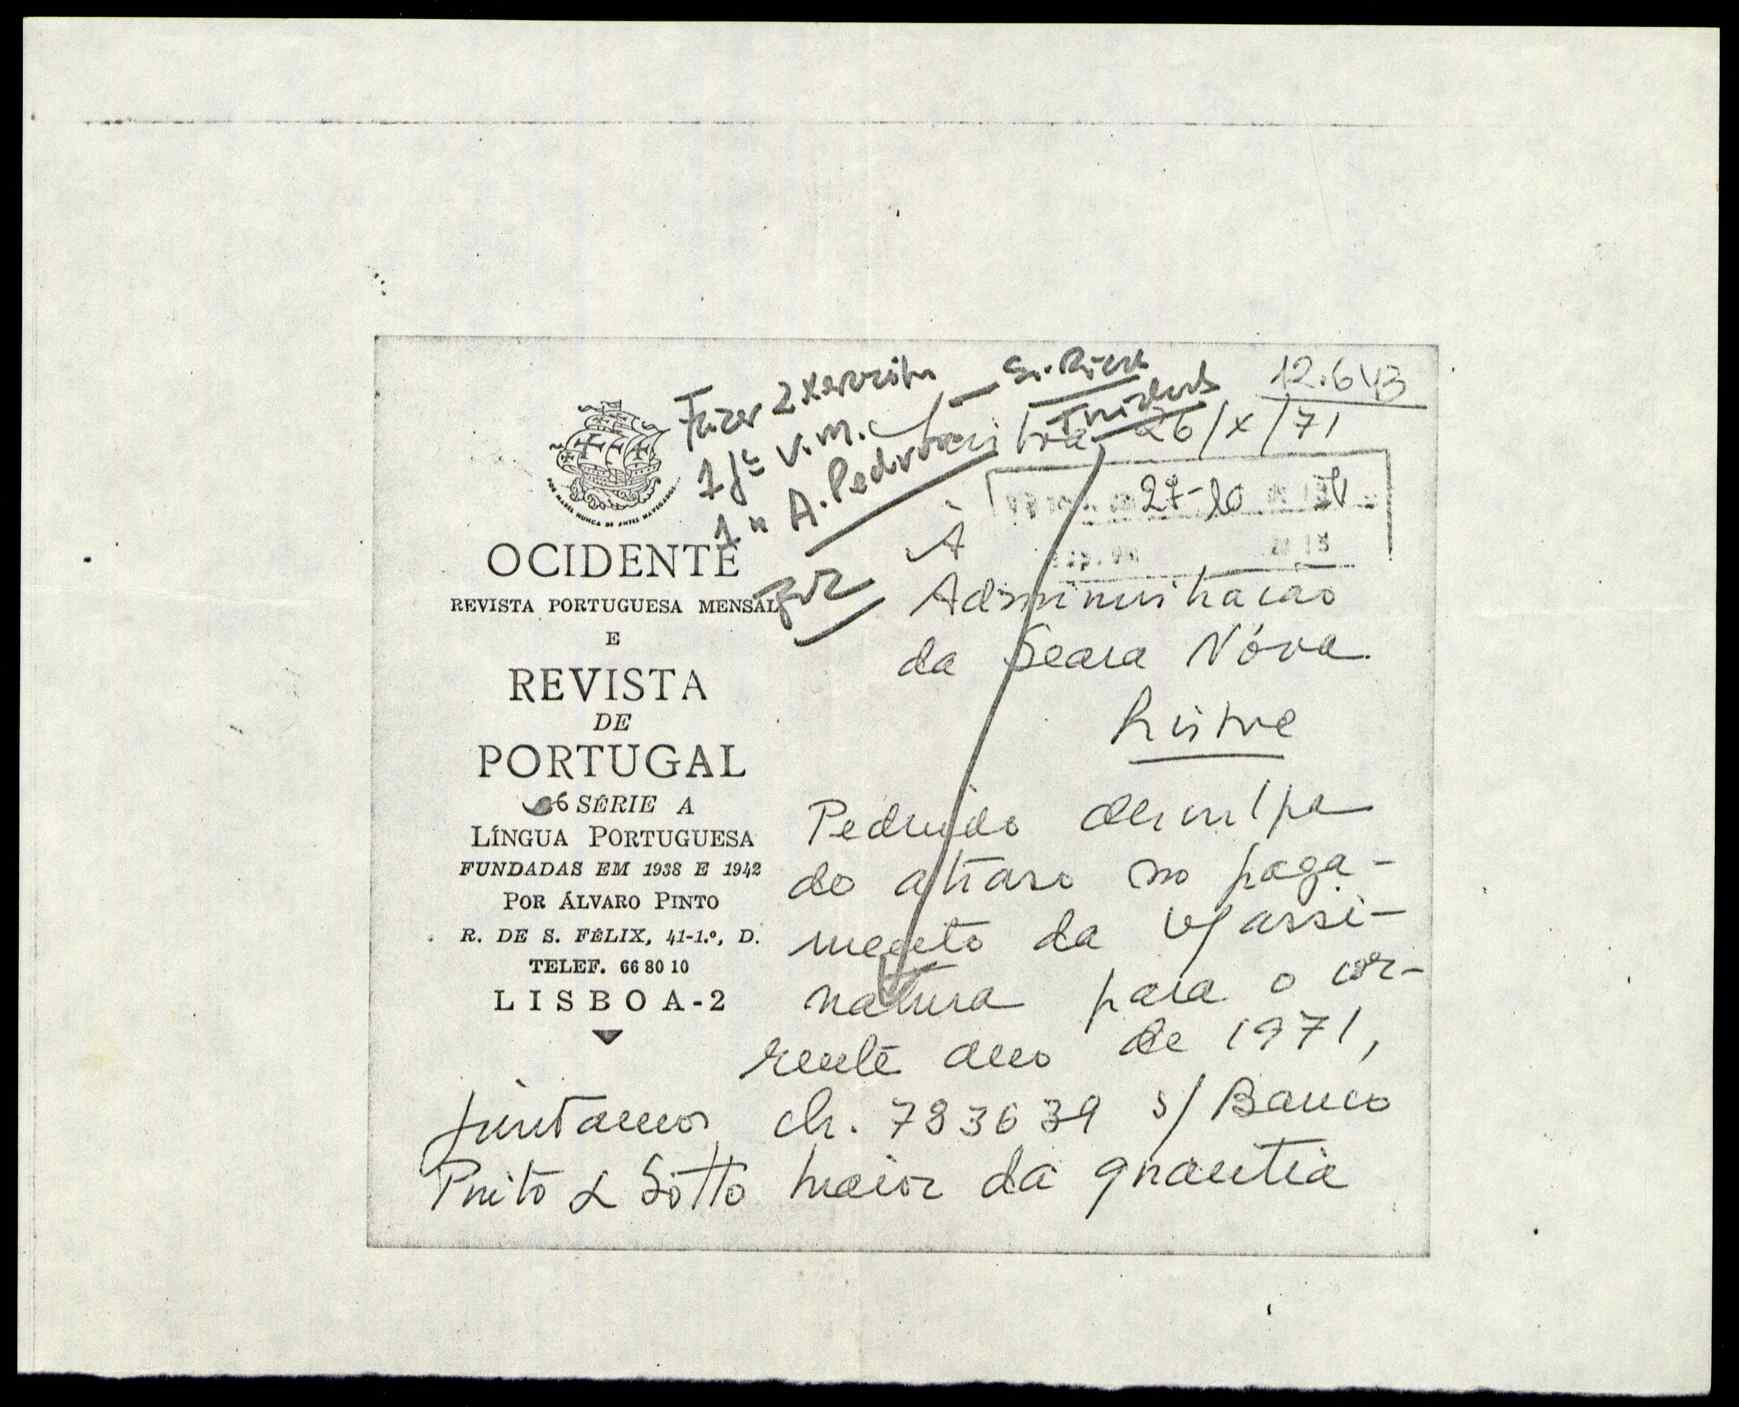 12.643
Fazer 2
1 fª v.m.
1 " A. Pedro
26/X/71
27-10
POR MARES NUNCA DE ANTES NAVEGADOS
OCIDENTE
REVISTA PORTUGUESA MENSAL
E
REVISTA
DE
PORTUGAL
SÉRIE A
LÍNGUA PORTUGUESA
FUNDADAS EM 1938 E 1942
POR ÁLVARO PINTO
R. DE S. FÉLIX, 41-1.º, D.
TELEF. 66 80 10
LISBOA-2
À
Administração
da Seara Nóva
Lisboa
Pedindo desculpa
do atraso no paga-
mento da v/ assi-
natura para o cor-
rente ano de 1971,
juntamos ch. 783639 s/ Banco
Pinto & Sotto Maior da quantia